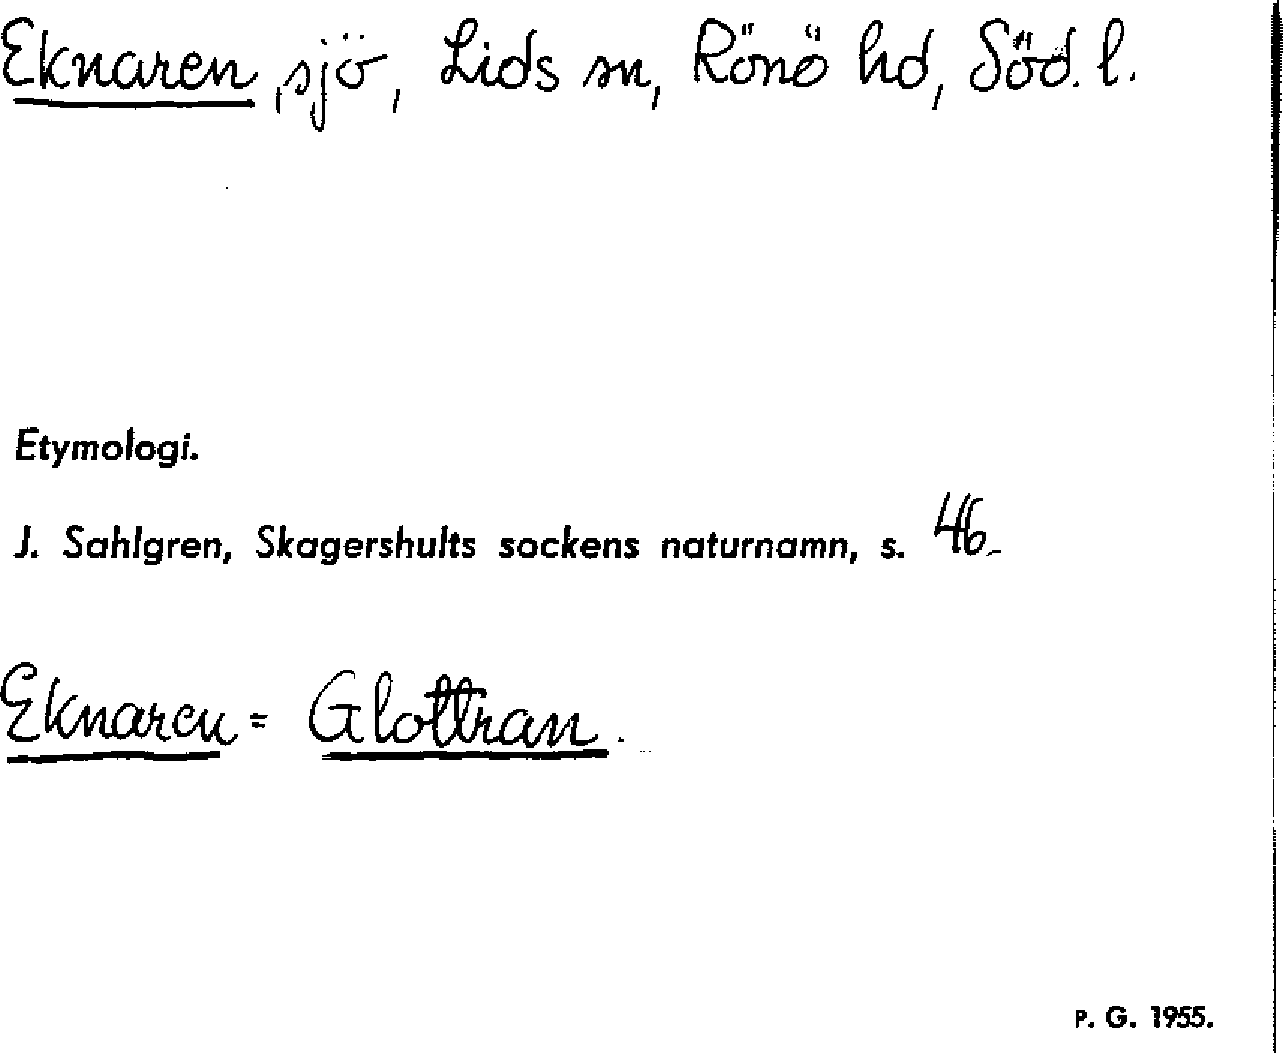 Eknaren, sjö, Lids sn, Rönö hd, Söd. l.
Etymologi.
J. Sahlgren, Skagershults sockens naturnamn, s. 46.
Eknaren = Glottran.
P. G. 1955.